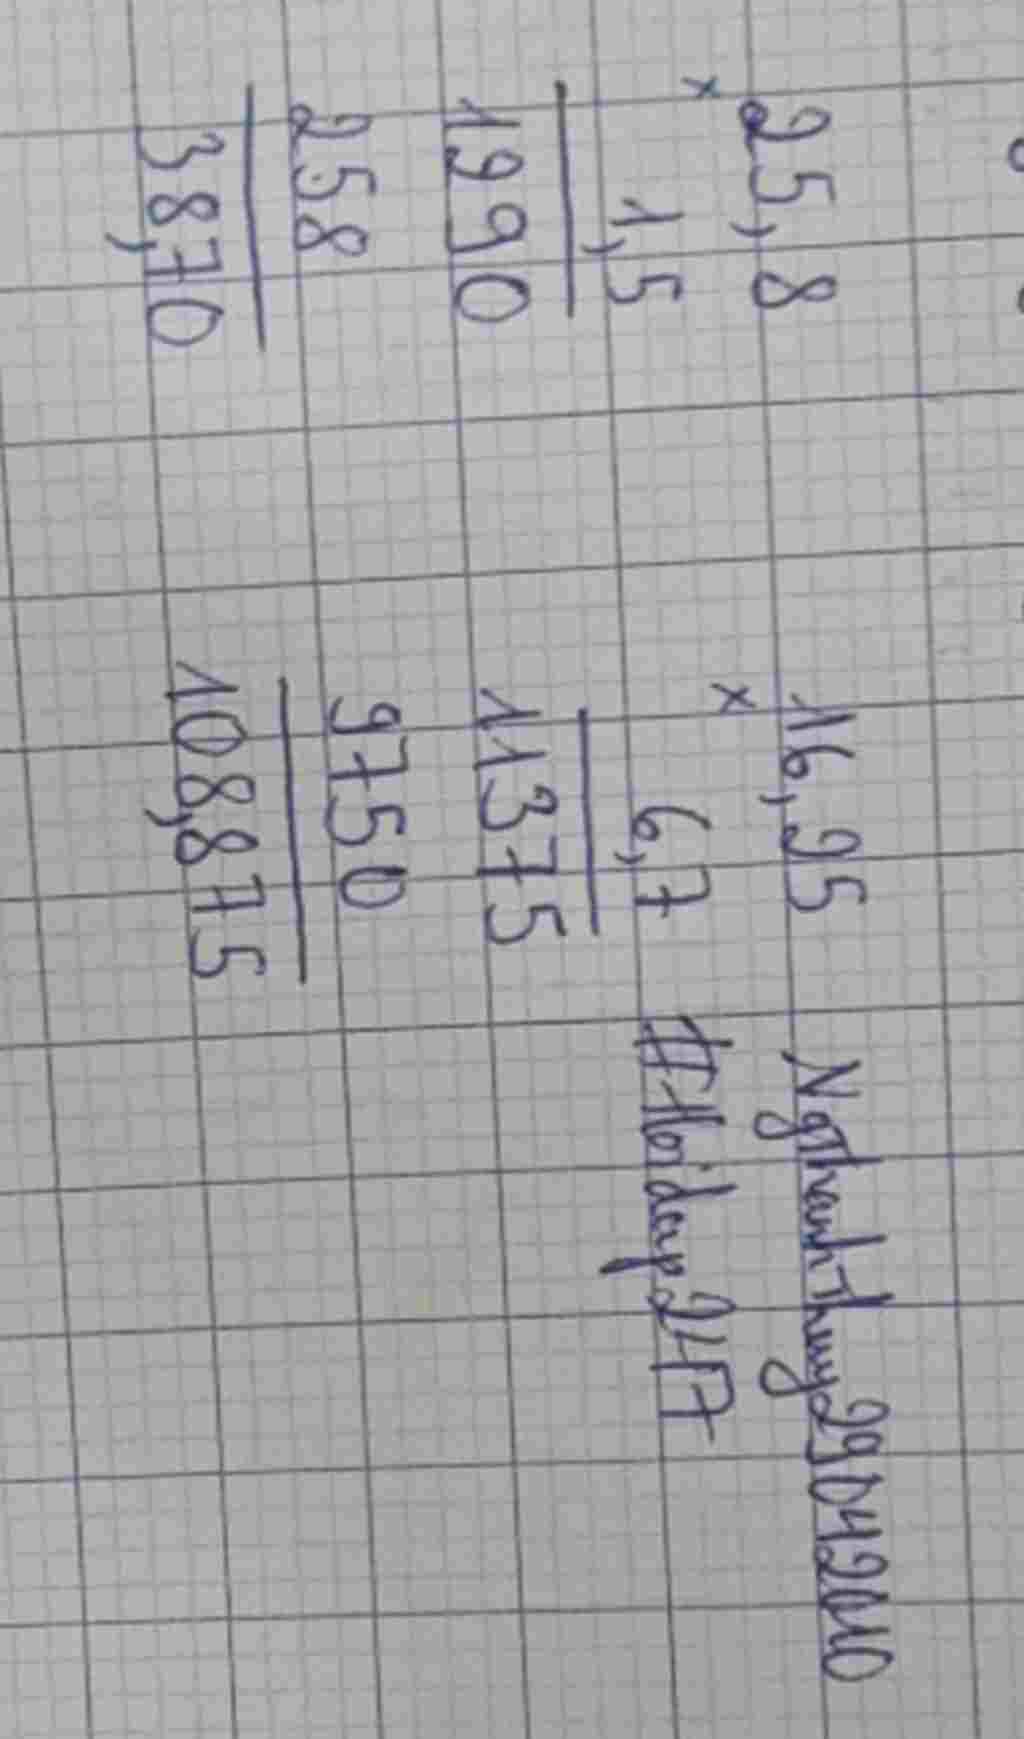 × 25,8
1,5
1290
258
38,70
× 16,25
6,7
11375
9750
108,875
NgThanhThuy29042010
#Hoidap247